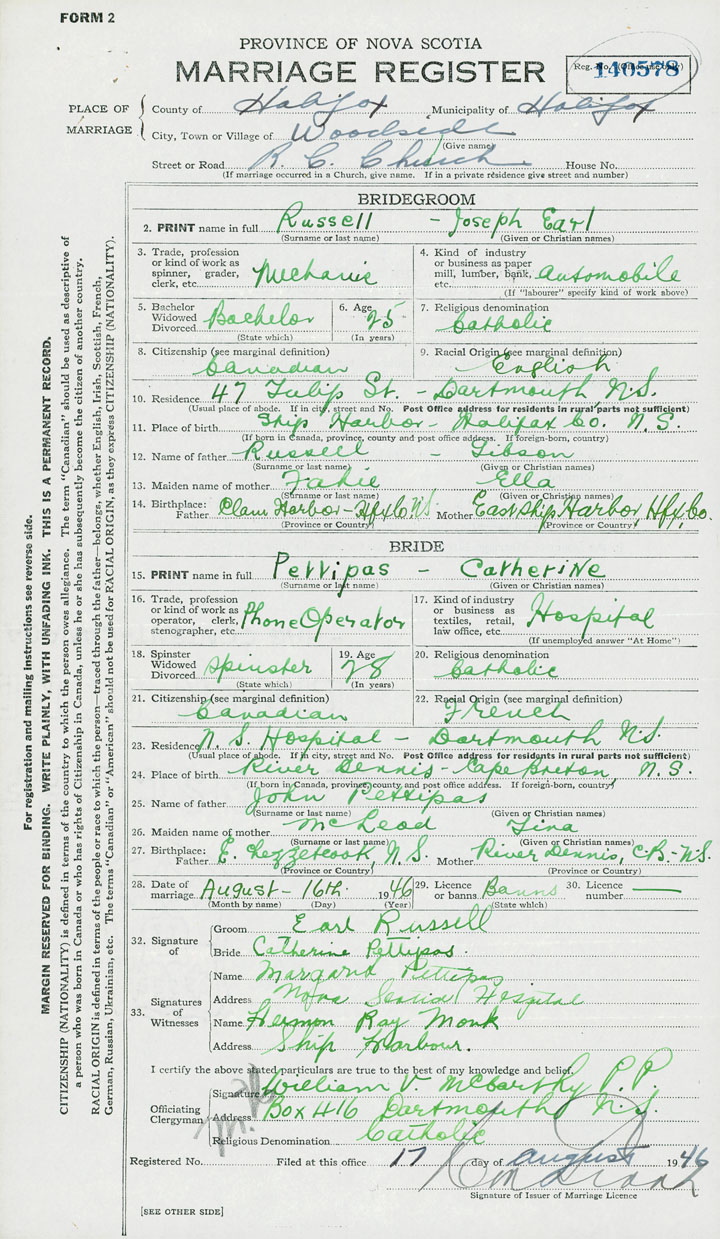 FORM 2
PROVINCE OF NOVA SCOTIA
MARRIAGE REGISTER
Reg. No. (Office use only) 140578
PLACE OF MARRIAGE
County of Halifax Municipality of Halifax
City, Town or Village of Woodside
(Give name)
Street or Road R. C. Church House No.
(If marriage occurred in a Church, give name. If in a private residence give street and number)
BRIDEGROOM
2. PRINT name in full Russell - Joseph Earl
(Surname or last name) (Given or Christian names)
3. Trade, profession or kind of work as spinner, grader, clerk, etc. Mechanic
4. Kind of industry or business as paper mill, lumber, bank, etc. Automobile
(If "labourer" specify kind of work above)
5. Bachelor Widowed Divorced Bachelor
(State which)
6. Age 25
(In years)
7. Religious denomination Catholic
8. Citizenship (see marginal definition) Canadian
9. Racial Origin (see marginal definition) English
10. Residence 47 Tulip St. - Dartmouth N.S.
(Usual place of abode. If in city, street and No. Post Office address for residents in rural parts not sufficient)
11. Place of birth Ship Harbor - Halifax Co. N.S.
(If born in Canada, province, county and post office address. If foreign-born, country)
12. Name of father Russell - Gibson
(Surname or last name) (Given or Christian names)
13. Maiden name of mother Fahie Ella
(Surname or last name) (Given or Christian names)
14. Birthplace: Father Clam Harbor - Hfx Co. N.S. Mother East Ship Harbor, Hfx, Co.
(Province or Country) (Province or Country)
BRIDE
15. PRINT name in full Pettipas - Catherine
(Surname or last name) (Given or Christian names)
16. Trade, profession or kind of work as operator, clerk, stenographer, etc. Phone Operator
17. Kind of industry or business as textiles, retail, law office, etc. Hospital
(If unemployed answer "At Home")
18. Spinster Widowed Divorced Spinster
(State which)
19. Age 28
(In years)
20. Religious denomination Catholic
21. Citizenship (see marginal definition) Canadian
22. Racial Origin (see marginal definition) French
23. Residence N.S. Hospital - Dartmouth N.S.
(Usual place of abode. If in city, street and No. Post Office address for residents in rural parts not sufficient)
24. Place of birth River Dennis - Cape Breton, N.S.
(If born in Canada, province, county and post office address. If foreign-born, country)
25. Name of father John Pettipas
(Surname or last name) (Given or Christian names)
26. Maiden name of mother McLeod Tina
(Surname or last name) (Given or Christian names)
27. Birthplace: Father E. Chezzetcook, N.S. Mother River Dennis, C.B.-N.S.
(Province or Country) (Province or Country)
28. Date of marriage August - 16th 1946
(Month by name) (Day) (Year)
29. Licence or banns Banns
(State which)
30. Licence number
32. Signature of
Groom Earl Russell
Bride Catherine Pettipas.
33. Signatures of Witnesses
Name Margaret Pettipas
Address Nova Scotia Hospital
Name Hermon Ray Monk
Address Ship Harbour.
I certify the above stated particulars are true to the best of my knowledge and belief.
Officiating Clergyman
Signature William V. McCarthy P.P.
Address Box 416 Dartmouth N.S.
Religious Denomination Catholic
Registered No. Filed at this office 17 day of August 1946
Signature of Issuer of Marriage Licence
[SEE OTHER SIDE]
For registration and mailing instructions see reverse side.
MARGIN RESERVED FOR BINDING. WRITE PLAINLY, WITH UNFADING INK. THIS IS A PERMANENT RECORD.
CITIZENSHIP (NATIONALITY) is defined in terms of the country to which the person owes allegiance. The term "Canadian" should be used as descriptive of
a person who was born in Canada or who has rights of Citizenship in Canada, unless he or she has subsequently become the citizen of another country.
RACIAL ORIGIN is defined in terms of the people or race to which the person—traced through the father—belongs, whether English, Irish, Scottish, French,
German, Russian, Ukrainian, etc. The terms "Canadian" or "American" should not be used for RACIAL ORIGIN, as they express CITIZENSHIP (NATIONALITY).